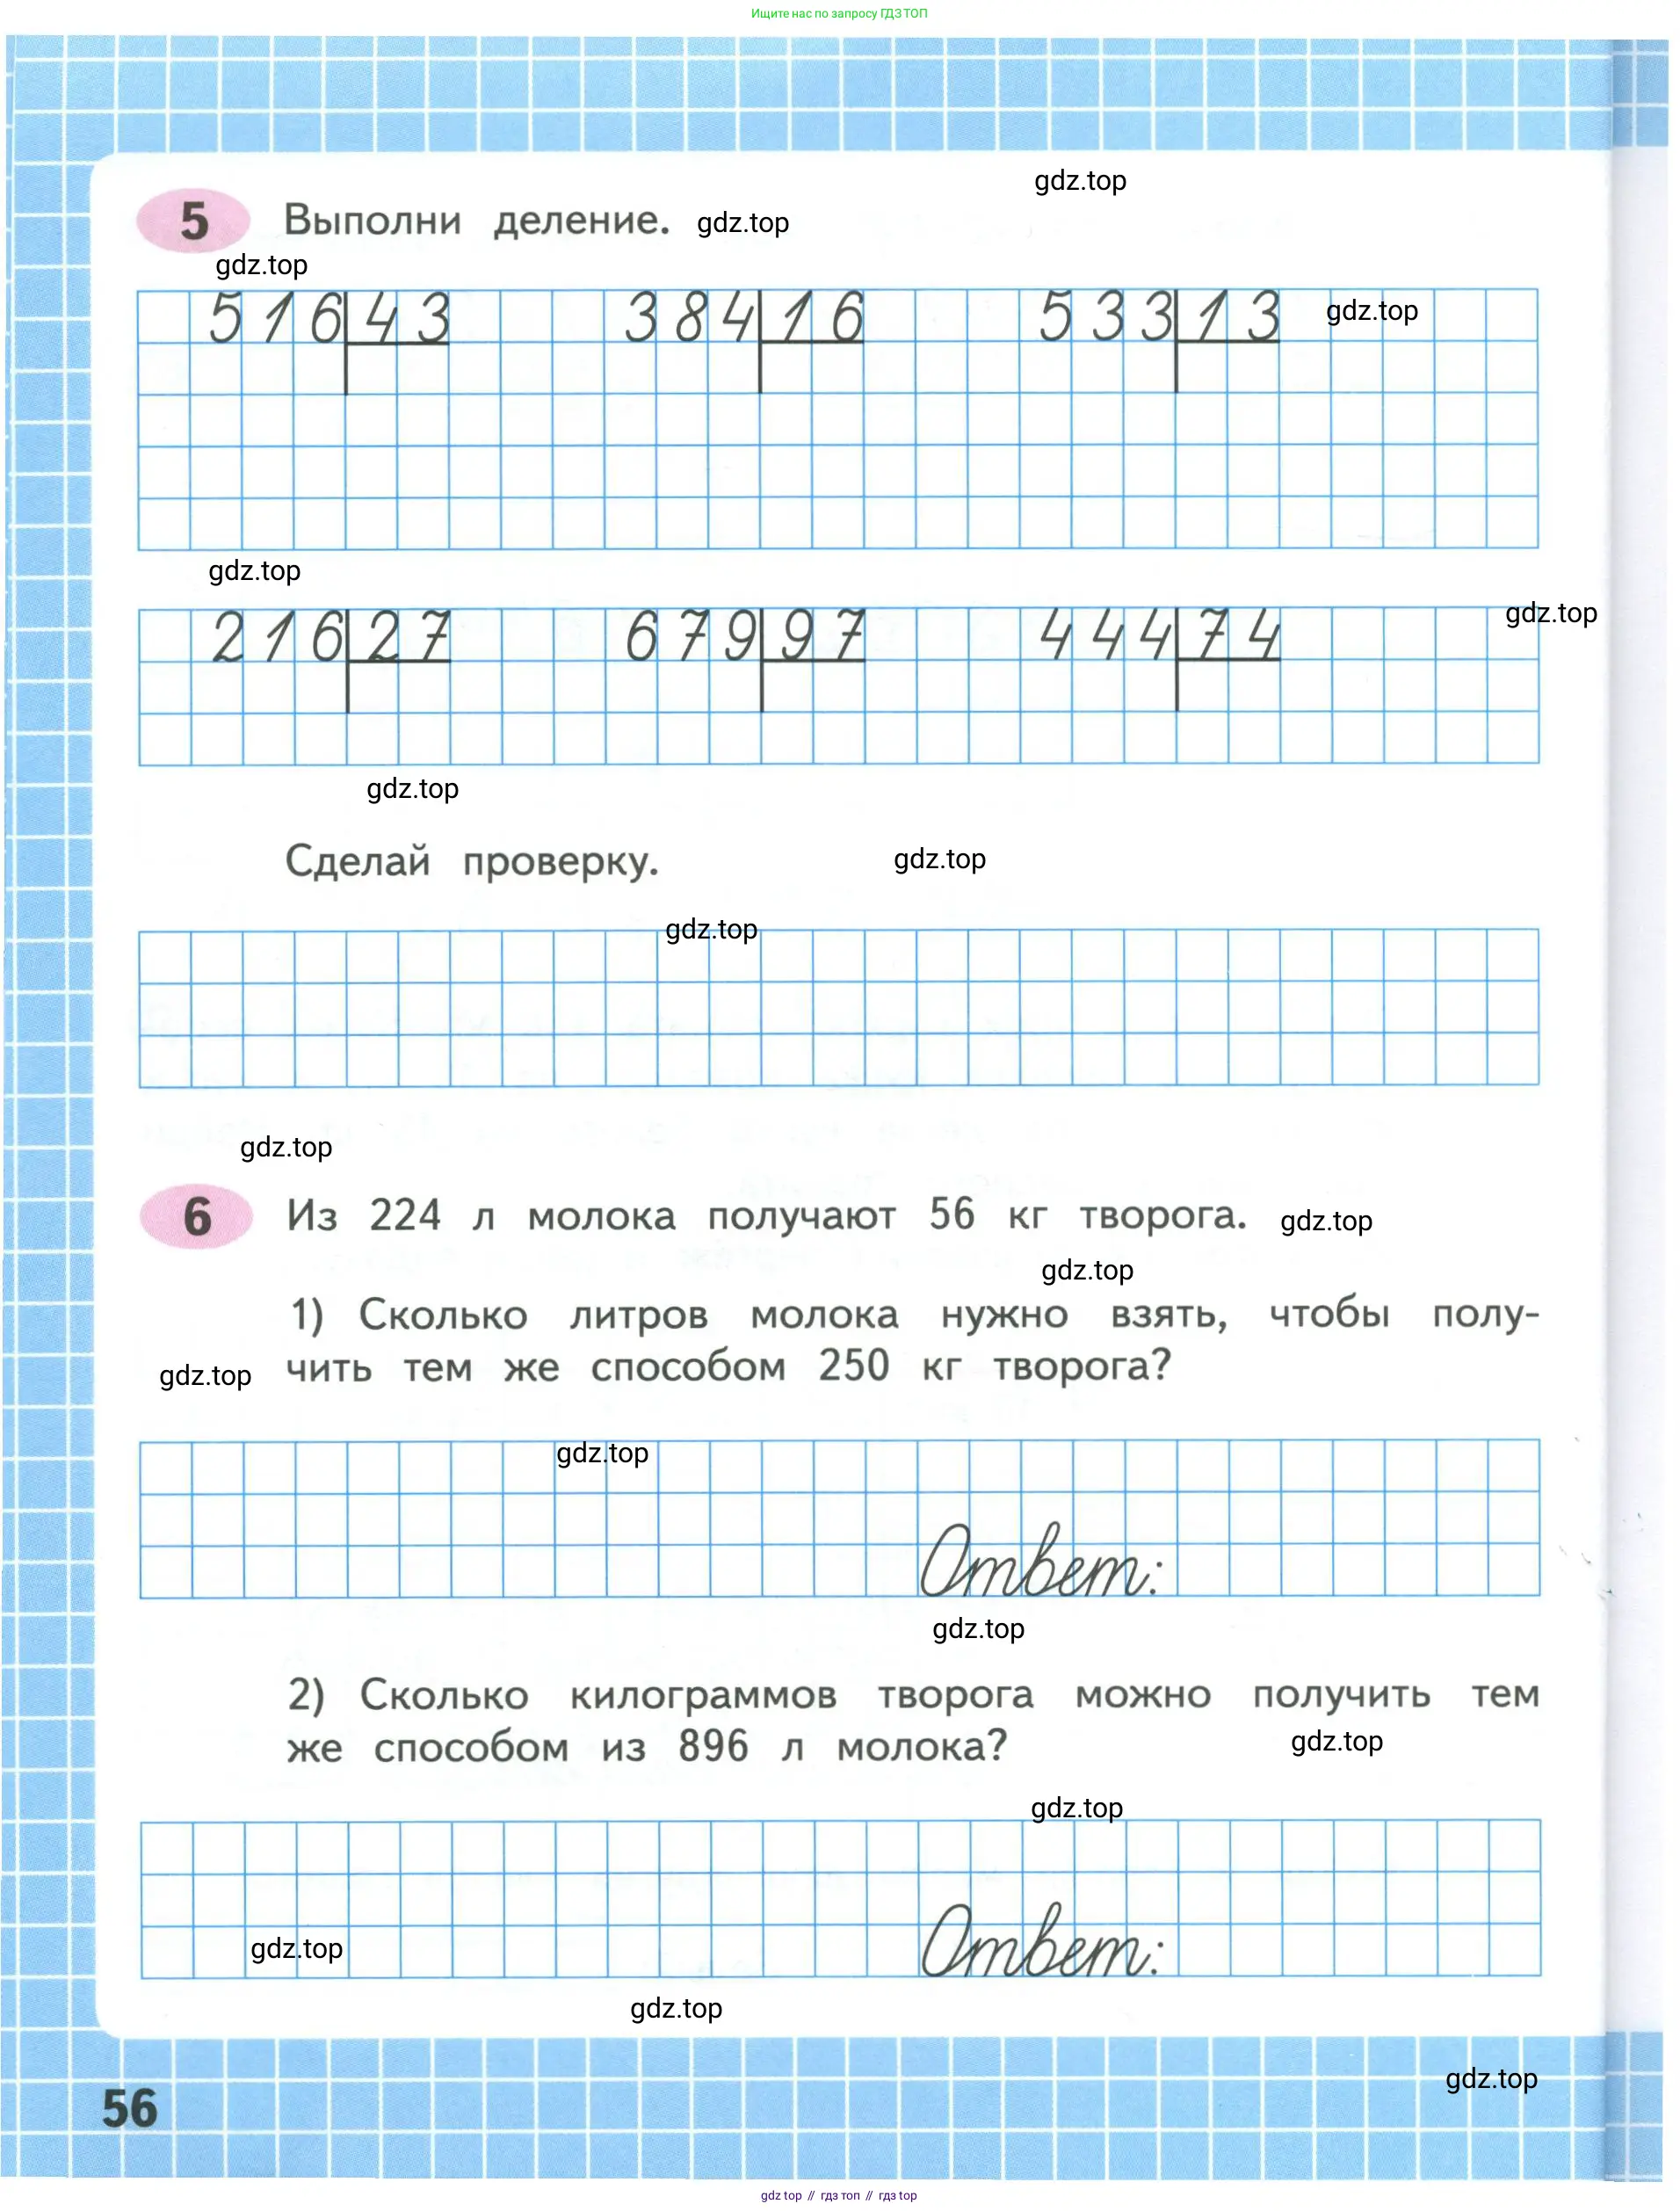 Ищите нас по запросу ГДЗ ТОП
gdz.top
5 Выполни деление. gdz.top
gdz.top
516 43 384 16 533 13 gdz.top
gdz.top
216 27 679 97 444 74 gdz.top
gdz.top
Сделай проверку. gdz.top
gdz.top
gdz.top
6 Из 224 л молока получают 56 кг творога. gdz.top
gdz.top
1) Сколько литров молока нужно взять, чтобы полу-
gdz.top чить тем же способом 250 кг творога?
gdz.top
Ответ:
gdz.top
2) Сколько килограммов творога можно получить тем
же способом из 896 л молока? gdz.top
gdz.top
gdz.top Ответ:
gdz.top
gdz.top
56
gdz top // гдз топ // гдз top